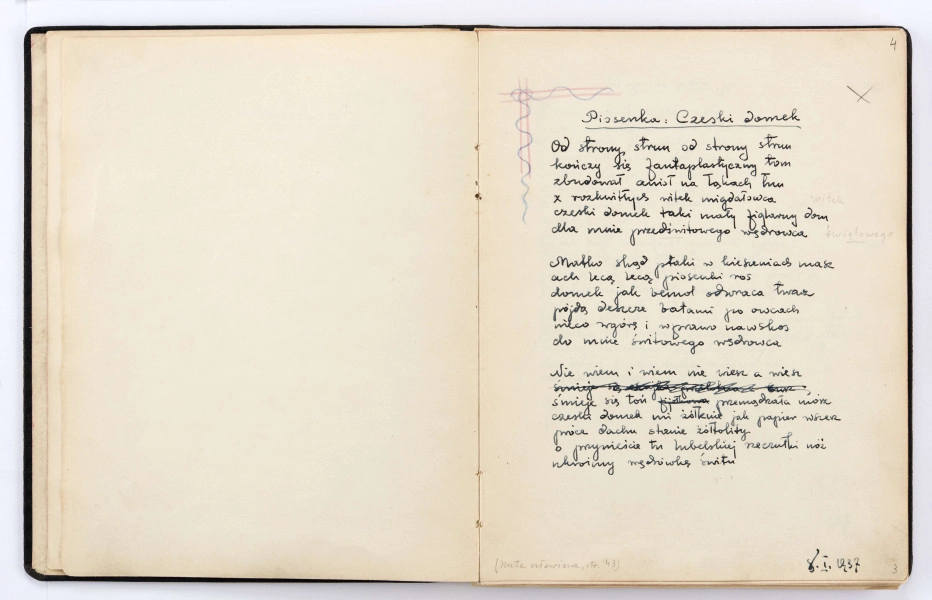 4
Piosenka: Czeski domek
Od strony strun od strony strun
kończy się fantaplastyczny tom
zbudował anioł na łąkach łun
z rozkwitłych witek migdałowca
witek
czeski domek taki mały figlarny dom
dla mnie przedświtowego wędrowca
świątowego
Matko skąd ptaki w kieszeniach masz
ach lecą lecą piosenki ros
domek jak bemol odwraca twarz
pójdą deszcze batami po owcach
nieco wgórę i wprawo nawskos
do mnie świtowego wędrowca
Nie wiem i wiem nie wiesz a wiesz
śmieje się toń przemądrzała mórz
czeski domek mi żółknie jak papier wszerz
prócz dachu stanie żółtolity
o przynieście tu lubelskiej rzeczułki nóż
ukroimy wędrówkę świtu
(Nuta człowiecza, str. 43)
8. I. 1937
3